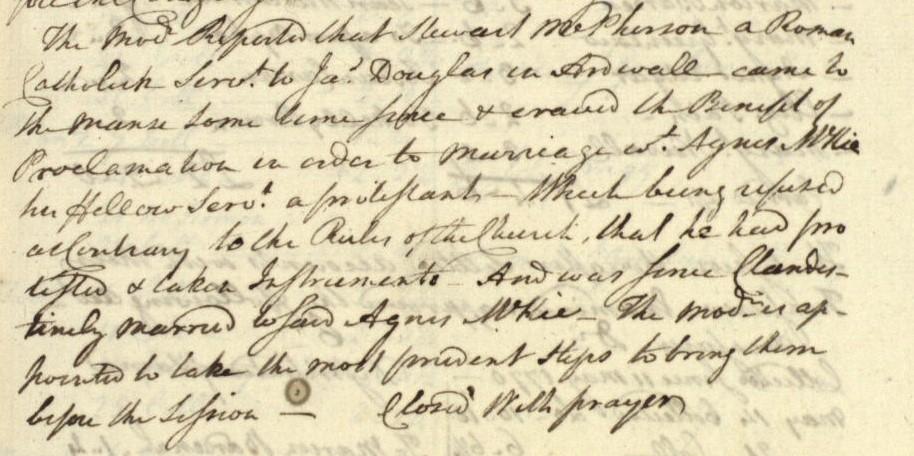 The Modr Reported that Stewart McPherson a Roman
Catholick Servt. to Jas. Douglas in Ardwall came to
the manse some time since & craved the Benefit of
Proclamation in order to marriage wt. Agnes McKie
her Fellow Servt. a protestant – Which being refused
as Contrary to the Rules of the Church, that he had pro
tested & taken Instruments – And was since Clandes-
tinely married to said Agnes McKie – The modr. is ap-
pointed to take the most prudent steps to bring them
before the Session — Closd. With prayer